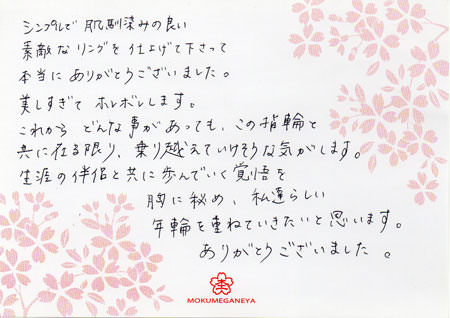 シンプルで 肌馴染みの良い
素敵な リングを 仕上げて下さって
本当に ありがとうございました。
美しすぎて ホレボレします。
これから どんな事があっても、この指輪と
共に在る限り、乗り越えていけそうな気がします。
生涯の伴侶と共に歩んでいく覚悟を
胸に秘め、私達らしい
年輪を重ねていきたいと思います。
ありがとうございました。
MOKUMEGANEYA